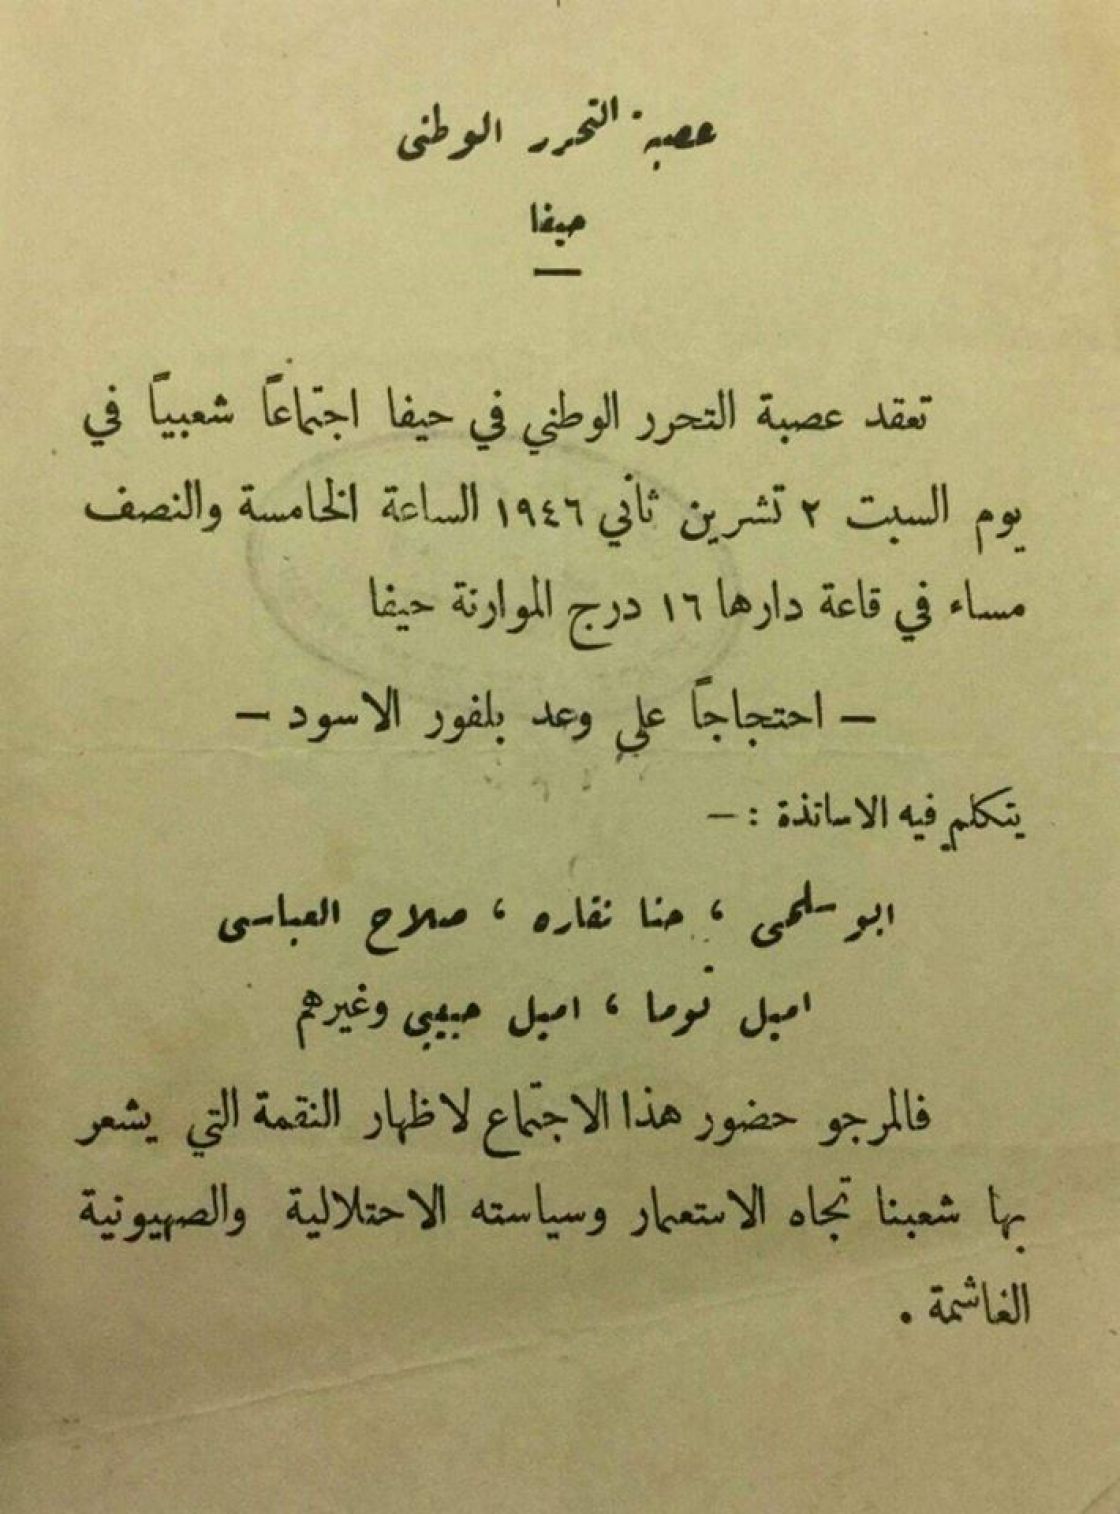 عصبة التحرر الوطنى
حيفا
تعقد عصبة التحرر الوطني في حيفا اجتماعاً شعبياً في
يوم السبت ٢ تشرين ثاني ١٩٤٦ الساعة الخامسة والنصف
مساء في قاعة دارها ١٦ درج الموارنة حيفا
— احتجاجاً على وعد بلفور الاسود —
يتكلم فيه الاساتذة : —
ابو سلمى ، حنا نقاره ، صلاح العباسى
اميل توما ، اميل حبيبي وغيرهم
فالمرجو حضور هذا الاجتماع لاظهار النقمة التي يشعر
بها شعبنا تجاه الاستعمار وسياسته الاحتلالية والصهيونية
الغاشمة .